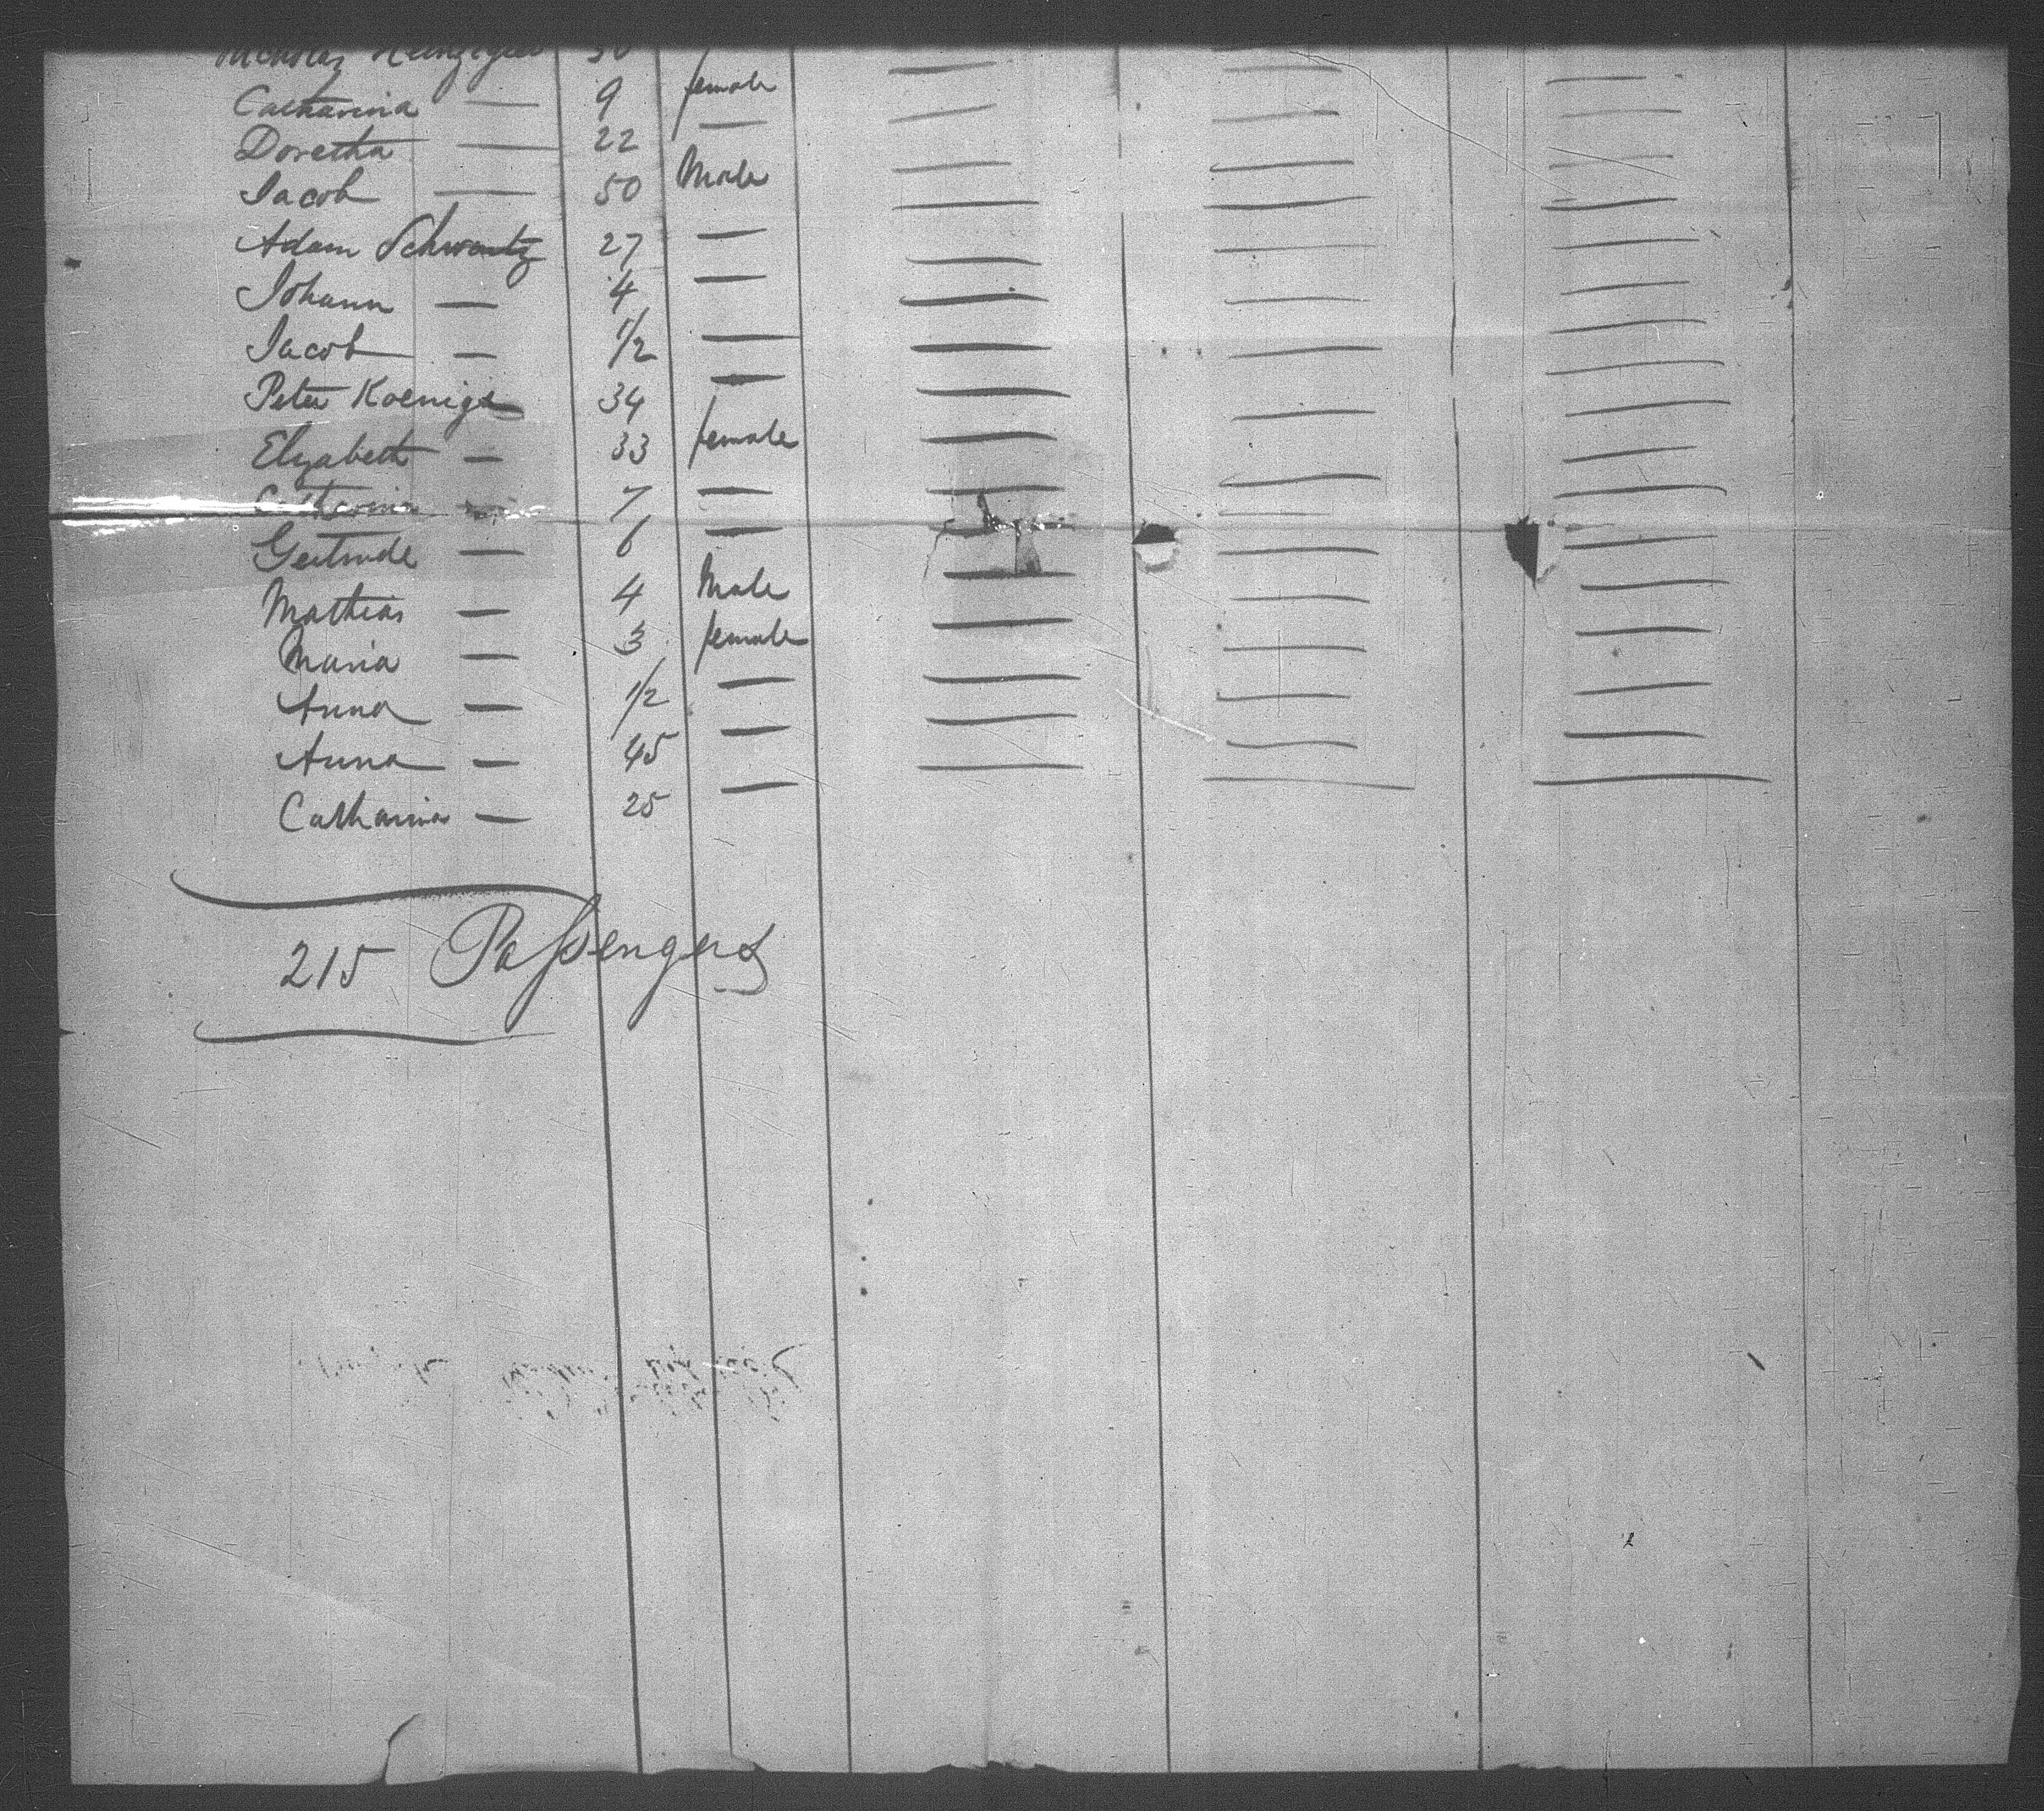 Nicholas 30
Catharina — 9 female
Doretha — 22 —
Jacob — 50 Male
Adam Schwartz 27 —
Johann — 4 —
Jacob — 1/2 —
Peter Koenigs 34 —
Elizabeth — 33 female
Catharina — 7 —
Gertrude — 6 —
Mathias — 4 Male
Maria — 3 female
Anna — 1/2 —
Anna — 45 —
Catharina — 25 —
215 Passengers